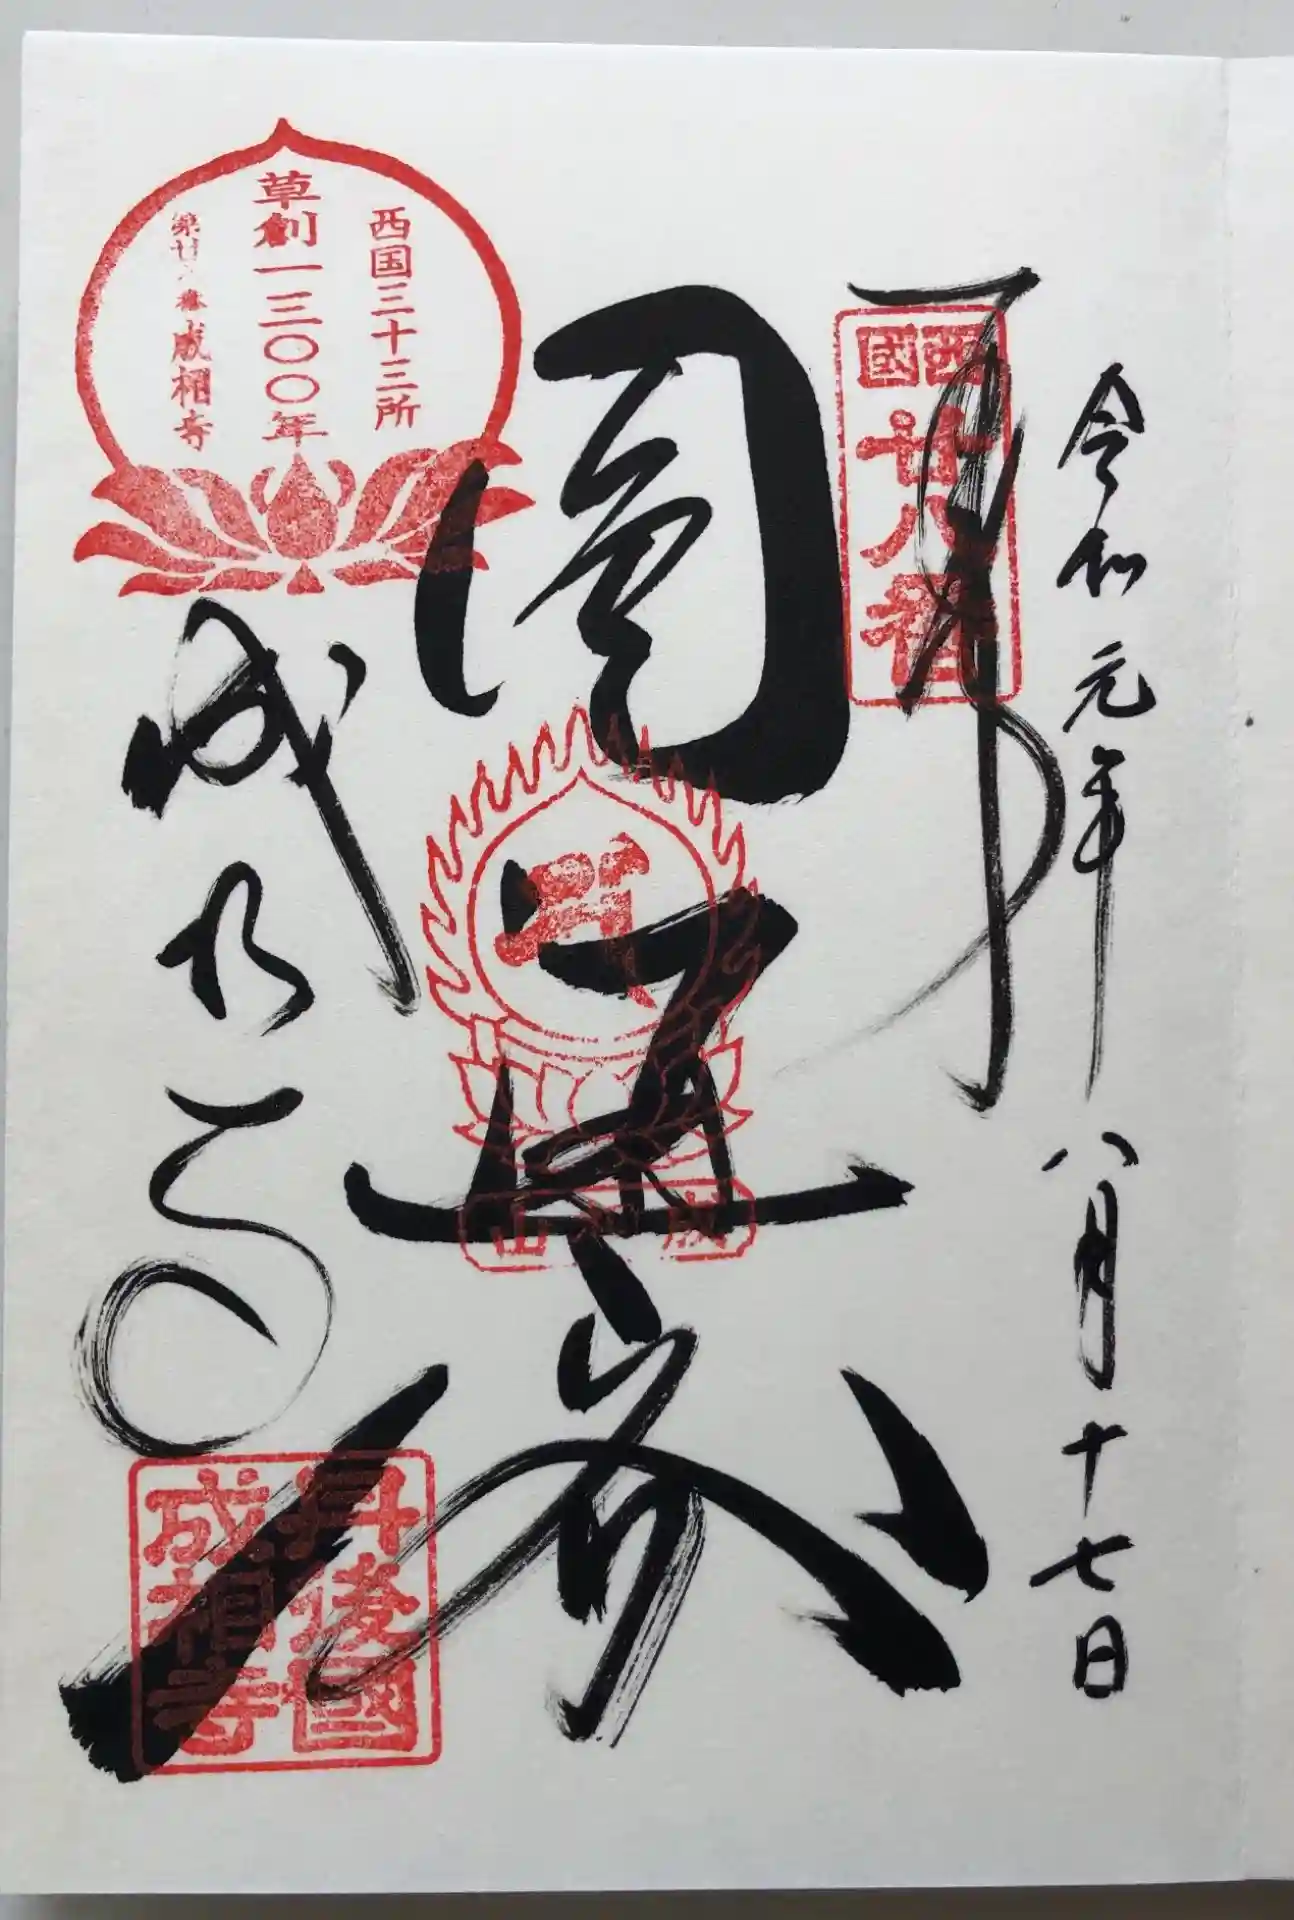 令和元年八月十七日
奉拝
西國
廿八番
圓
成相山
西国三十三所
草創一三〇〇年
第廿八番成相寺
成相寺
丹後國
成相寺